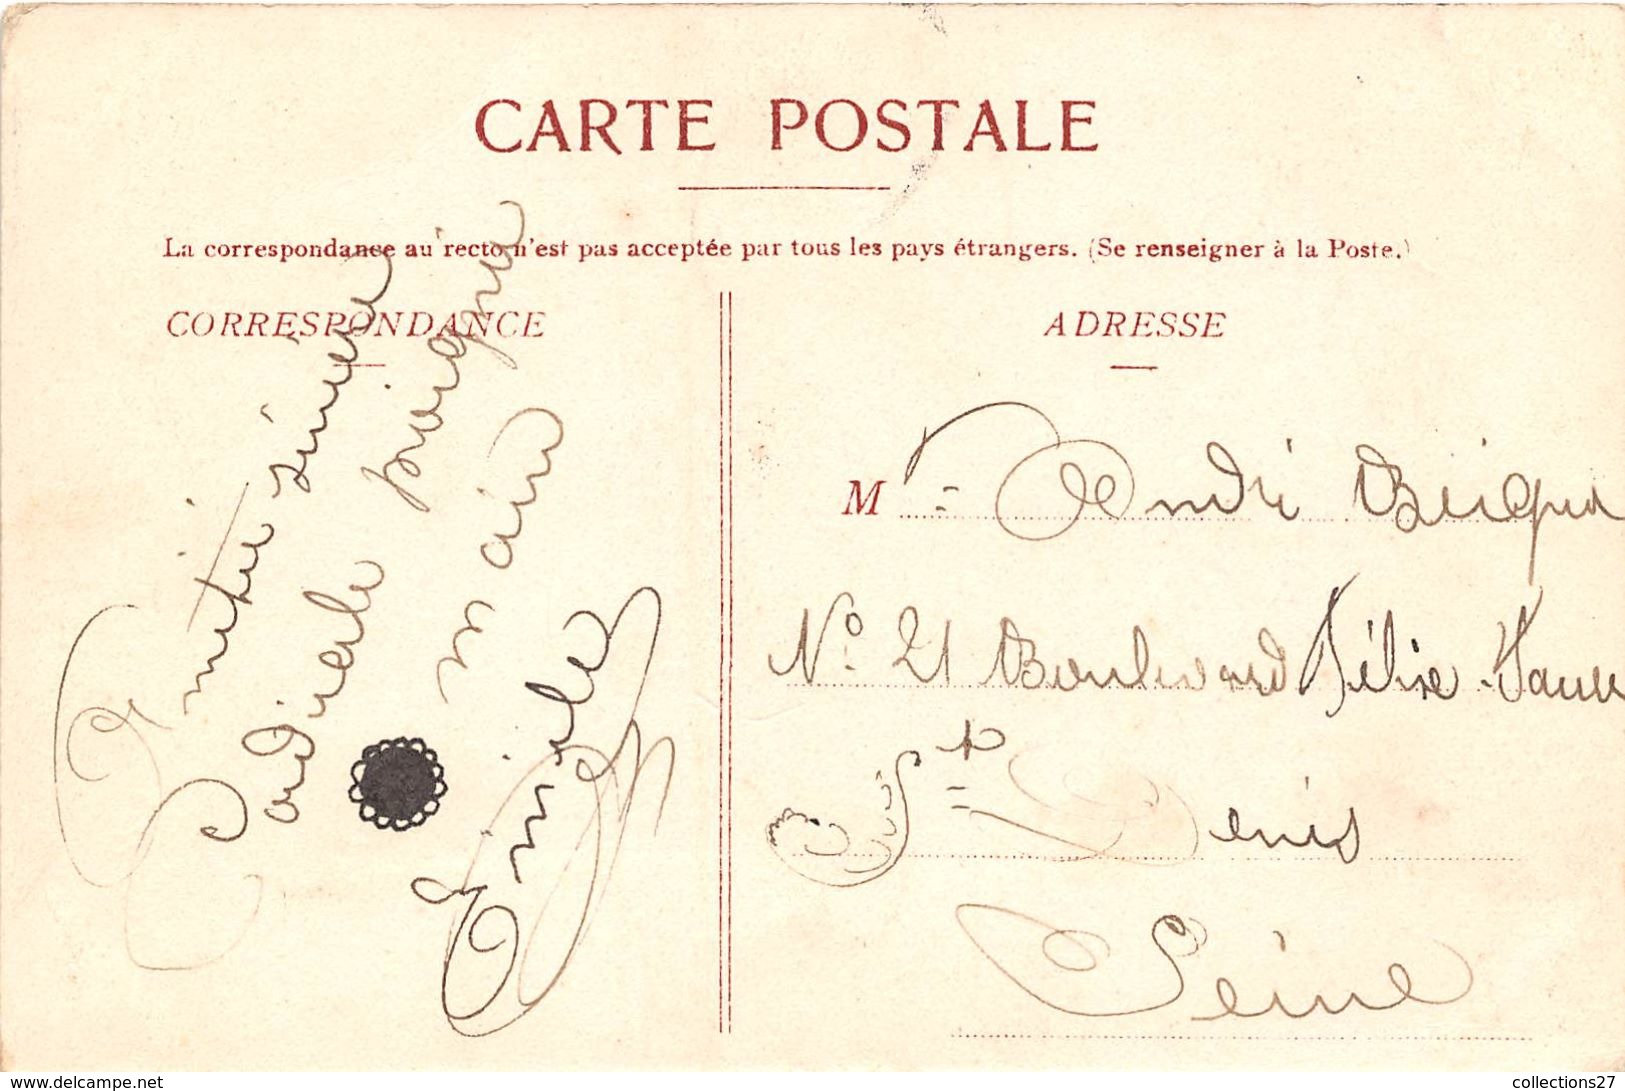 CARTE POSTALE
La correspondance au recto n'est pas acceptée par tous les pays étrangers. (Se renseigner à la Poste.)
CORRESPONDANCE
Amitié sincère
Cordiale poignée
main
Emile
ADRESSE
M r = André
N° 21 Boulevard Félix Faure
St = Denis
Seine
www.delcampe.net
collections27